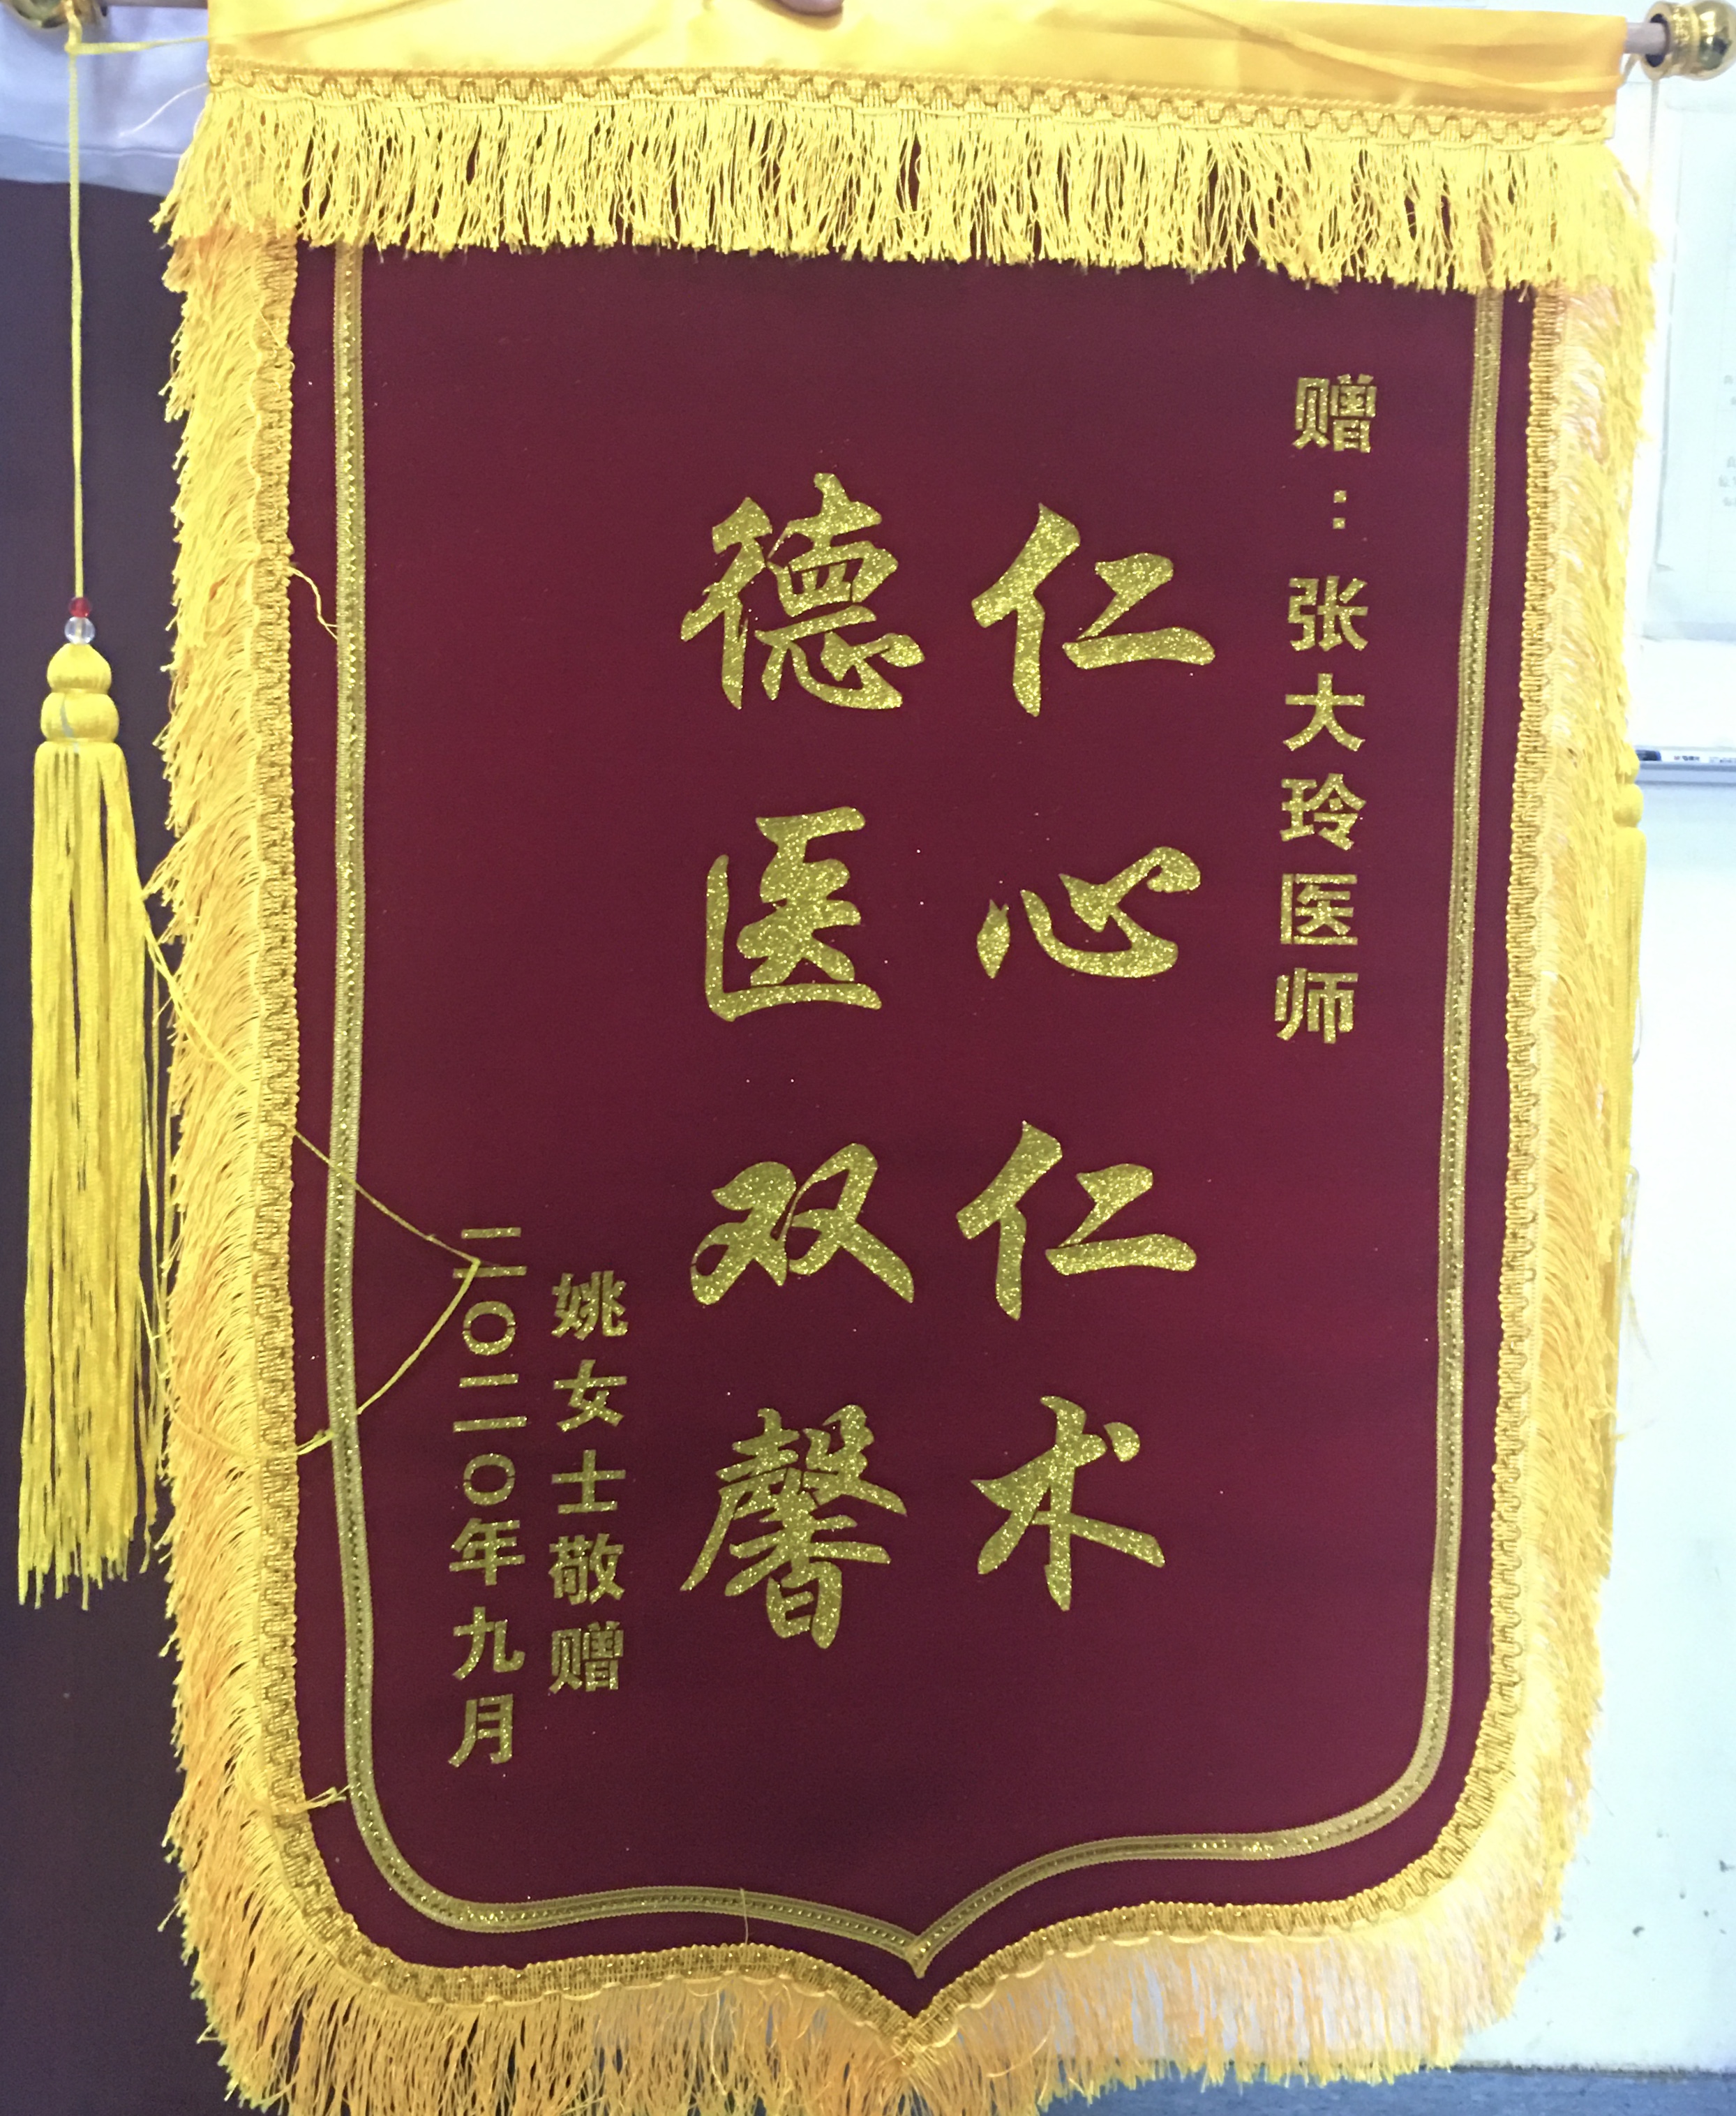 赠：张大玲医师
仁心仁术
德医双馨
姚女士敬赠
二〇二〇年九月